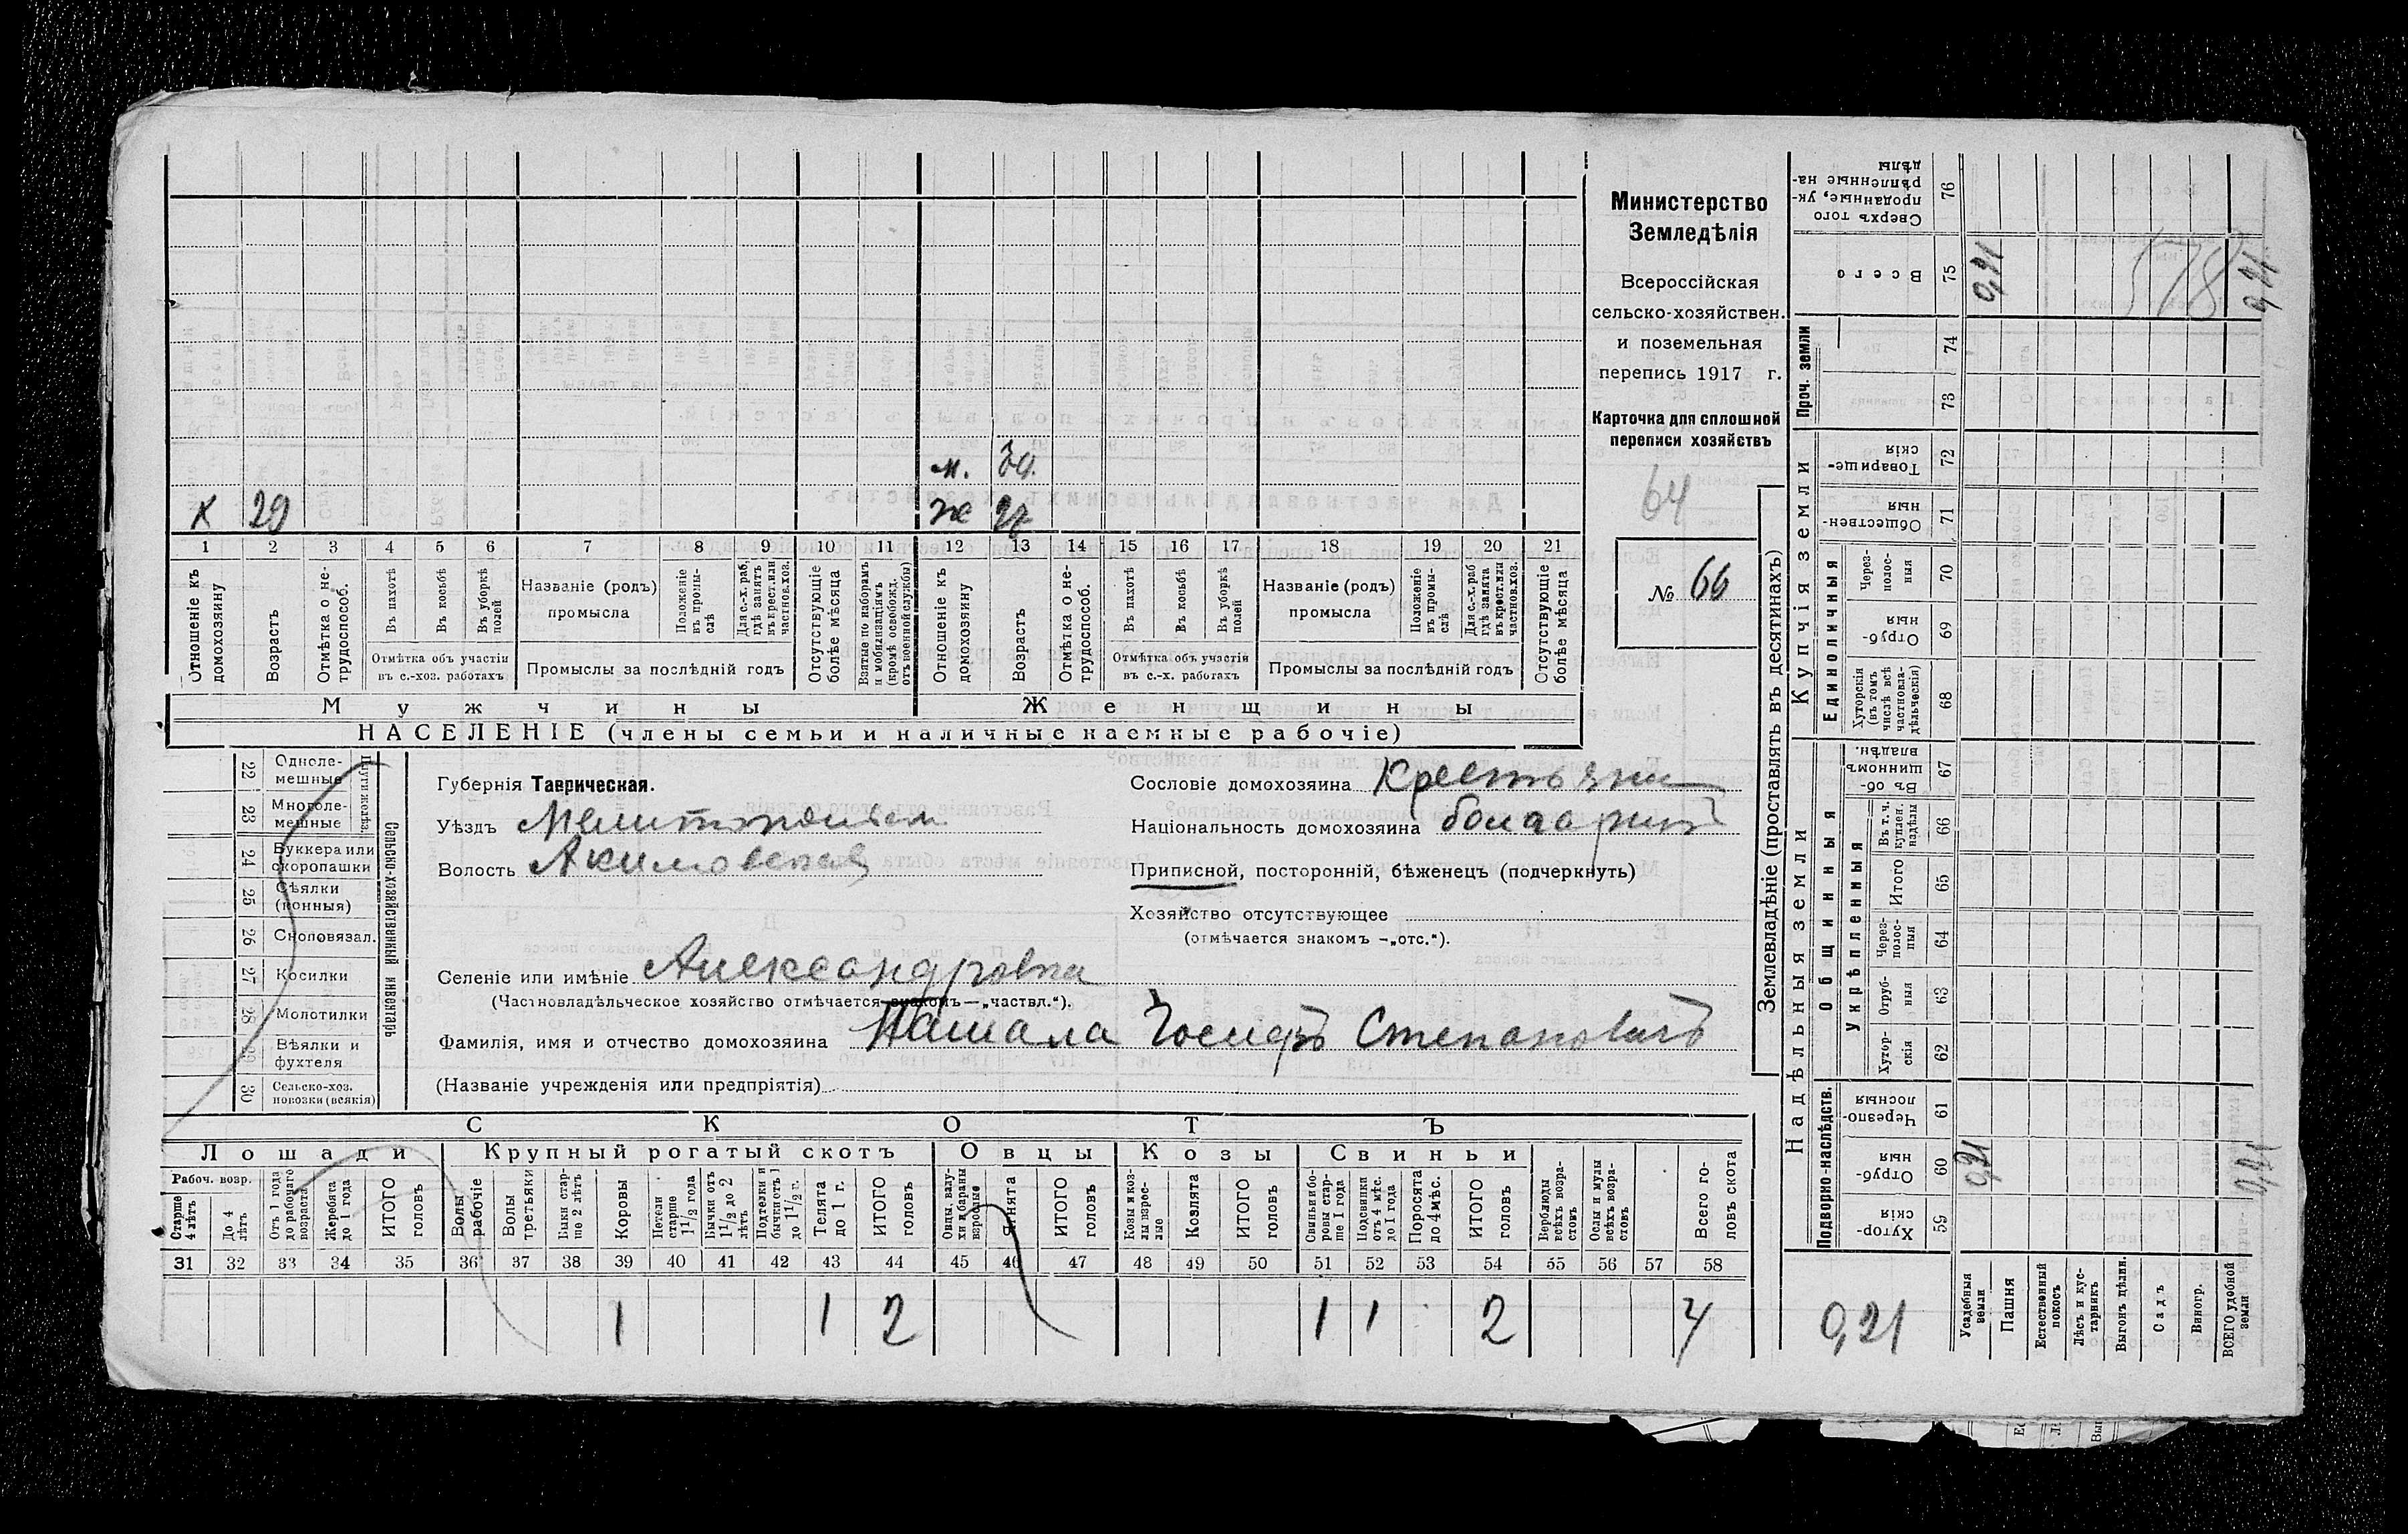 м. 30.
х 29
же 27
1 2 3 4 5 6 7 8 9 10 11 12 13 14 15 16 17 18 19 20 21
Отношеніе къ домохозяину
Возрастъ
Отмѣтка о нетрудоспособ.
Въ пахотѣ
Въ косьбѣ
Въ уборкѣ полей
Отмѣтка объ участіи въ с.-хоз. работахъ
Названіе (родъ) промысла
Положеніе въ промыслѣ
Для с.-х. раб., гдѣ занятъ въ крест. или частнов. хоз.
Промыслы за послѣдній годъ
Отсутствующіе болѣе мѣсяца
Взятые по наборамъ и мобилизаціямъ (кромѣ освобожд. отъ военной службы)
Отношеніе къ домохозяину
Возрастъ
Отмѣтка о нетрудоспособ.
Въ пахотѣ
Въ косьбѣ
Въ уборкѣ полей
Отмѣтка объ участіи въ с.-х. работахъ
Названіе (родъ) промысла
Положеніе въ промыслѣ
Для с.-х. раб гдѣ занята въ крест. или частнов. хоз.
Промыслы за послѣдній годъ
Отсутствующіе болѣе мѣсяца
Мужчины
Женщины
НАСЕЛЕНІЕ (члены семьи и наличные наемные рабочіе)
Министерство
Земледѣлія
Всероссійская
сельско-хозяйствен.
и поземельная
перепись 1917 г.
Карточка для сплошной
переписи хозяйствъ
64
№ 66
22 Одноле-мешные
23 Многоле-мешные
Плуги желѣз.
24 Буккера или скоропашки
25 Сѣялки (конныя)
26 Сноповязал.
27 Косилки
28 Молотилки
29 Вѣялки и фухтеля
30 Сельско-хоз. повозки (всякія)
Сельско-хозяйственный инвентарь
Губернія Таврическая.
Уѣздъ Мелитопольскій
Волость Акимовская
Сословіе домохозяина Крестьянин
Національность домохозяина болгарин
Приписной, посторонній, бѣженецъ (подчеркнуть)
Хозяйство отсутствующее
(отмѣчается знакомъ -„отс.“).
Селеніе или имѣніе Александровка
(Частновладѣльческое хозяйство отмѣчается знакомъ—„частвл.“).
Фамилія, имя и отчество домохозяина Пашала Іосифъ Степановичъ
(Названіе учрежденія или предпріятія)
СКОТЪ
Лошади
Крупный рогатый скотъ
Овцы
Козы
Свиньи
Рабоч. возр.
Старше 4 лѣтъ
До 4 лѣтъ
Отъ 1 года до рабочаго возраста
Жеребята до 1 года
ИТОГО головъ
Волы рабочіе
Волы третьяки
Быки старше 2 лѣтъ
Коровы
Нетели старше 1 1/2 года
Бычки отъ 1 1/2 до 2 лѣтъ
Подтелки и бычки отъ 1 до 1 1/2 г.
Телята до 1 г.
ИТОГО головъ
Овцы, валухи и бараны взрослые
Ягнята
ИТОГО головъ
Козы и козлы взрослые
Козлята
ИТОГО головъ
Свиньи и боровы старше 1 года
Подсвинки отъ 4 мѣс. до 1 года
Поросята до 4 мѣс.
ИТОГО головъ
Верблюды всѣхъ возрастовъ
Ослы и мулы всѣхъ возрастовъ
Всего головъ скота
31 32 33 34 35 36 37 38 39 40 41 42 43 44 45 46 47 48 49 50 51 52 53 54 55 56 57 58
1 1 2 1 1 2 4
Землевладѣніе (проставлять въ десятинахъ)
Купчія земли
Надѣльныя земли
Сверхъ того проданные, укрѣпленные надѣлы 76
Всего 75
0,21
578
0,21
Проч. земли
74
73
Товарище-скія 72
Обществен-ныя 71
Единоличныя
Через-полос-ныя 70
Отруб-ныя 69
Хуторскія (въ томъ числѣ всѣ частновладѣльческія) 68
Общинныя
Въ общинномъ владѣн. 67
Укрѣпленныя
Въ т. ч. куплен. надѣлы 66
Итого 65
Через-полос-ныя 64
Отруб-ныя 63
Хутор-скія 62
Подворно-наслѣдств.
Черезпо-лосныя 61
Отруб-ныя 60
0,21
0,21
Хутор-скія 59
0,21
Усадебныя земли
Пашня
Естественный покосъ
Лѣсъ и кус-тарникъ
Выгонъ цѣлин.
Садъ
Виногр.
ВСЕГО удобной земли